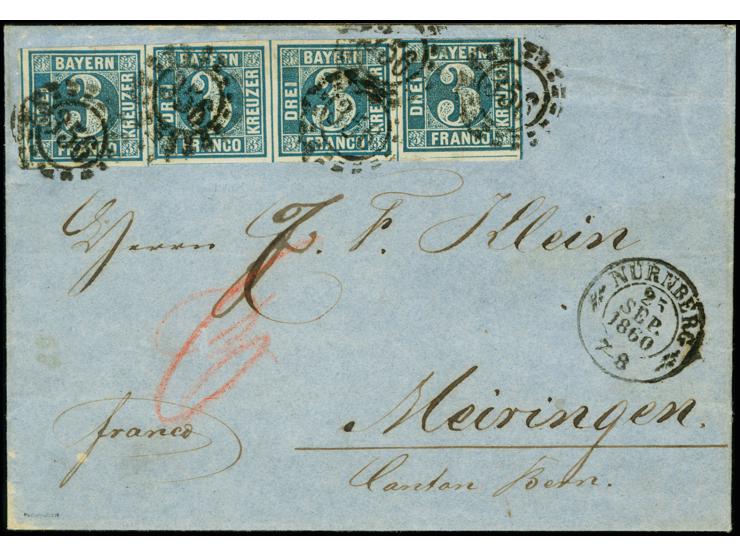 BAYERN BAYERN BAYERN BAYERN
DREI 3 KREUZER DREI 3 KREUZER DREI 3 KREUZER DREI 3 KREUZER
FRANCO FRANCO FRANCO FRANCO
Herrn J. F. Klein
NÜRNBERG
SEP.
1860
7-8
franco
Meiringen.
Canton Bern.